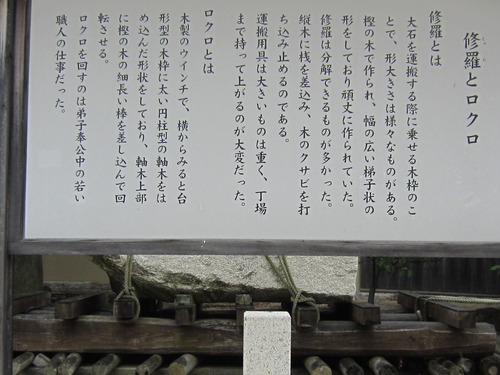 修羅とロクロ
修羅とは
大石を運搬する際に乗せる木枠のこ
とで、形大きさは様々なものがある。
樫の木で作られ、幅の広い梯子状の
形をしており頑丈に作られていた。
修羅は分解できるものが多かった。
縦木に桟を差込み、木のクサビを打
ち込み止めるのである。
運搬用具は大きいものは重く、丁場
まで持って上がるのが大変だった。
ロクロとは
木製のウインチで、横からみると台
形型の木枠に太い円柱型の軸木をは
め込んだ形状をしており、軸木上部
に樫の木の細長い棒を差し込んで回
転させる。
ロクロを回すのは弟子奉公中の若い
職人の仕事だった。